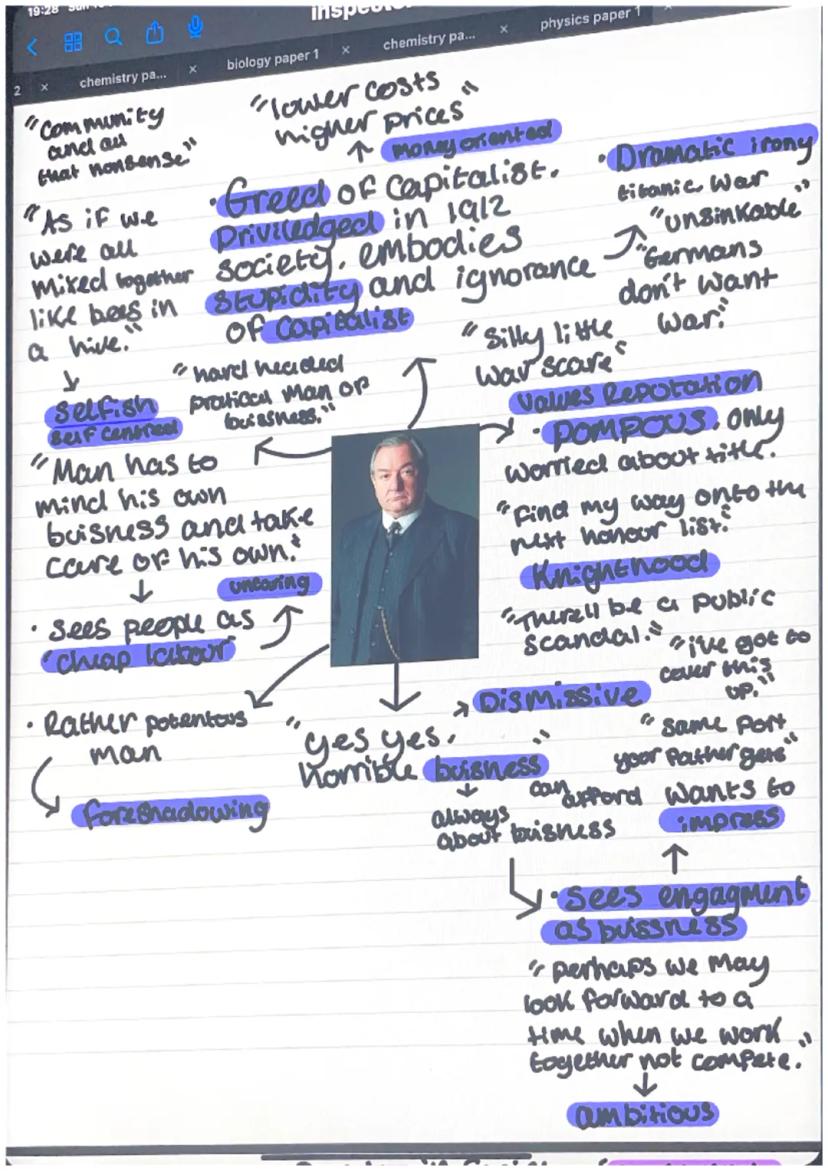 19:28
inspector
2 × chemistry pa... × biology paper 1 × chemistry pa... × physics paper 1
"Community
and all
that nonsense"
"lower costs
higher prices"
money oriented
• Greed of capitalist.
Priviledged in 1912
society. embodies
stupidity and ignorance
of capitalist
• Dramatic irony
titanic war
"unsinkable"
"Germans
don't want
war."
"Silly little
war scare"
"As if we
were all
mixed together
like bees in
a hive."
selfish
self centred
"hard headed
pratical man of
buisness."
"Man has to
mind his own
buisness and take
care of his own."
uncaring
• sees people as
"cheap labour"
values Reputation
• POMPOUS. only
worried about title.
"Find my way onto the
next honour list."
Knighthood
"There'll be a public
scandal."
"i've got to
cover this
up."
• Rather potentous
man
foreshadowing
"yes yes.
horrible buisness"
Dismissive
always
about buisness
"same port
your father gets"
can
afford
wants to
impress
• sees engagment
as buissness
"perhaps we may
look forward to a
time when we work
together not compete."
ambitious